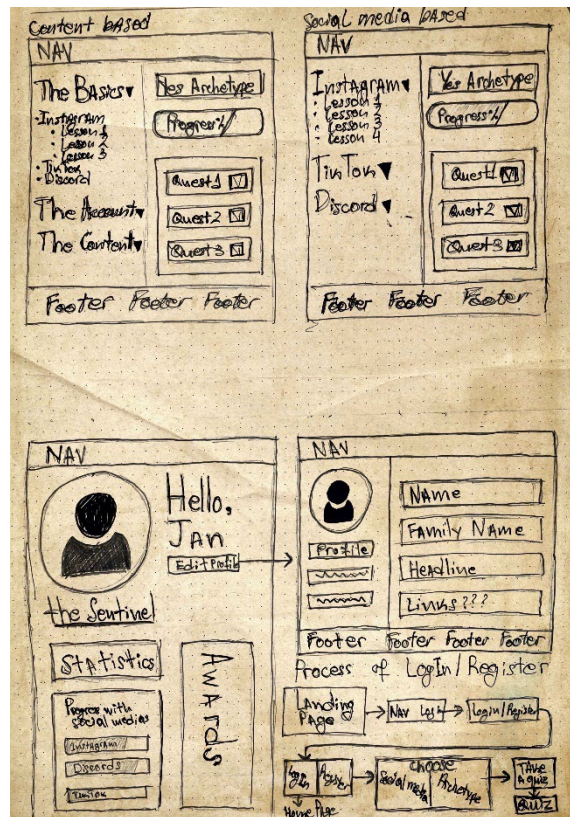 Content based
NAV
The Basics
Instagram
Lesson 1
Lesson 2
Lesson 3
TikTok
Discord
The Account
The Content
Yes Archetype
Progress%
Quest 1
Quest 2
Quest 3
Footer Footer Footer
Social media based
NAV
Instagram
Lesson 1
Lesson 2
Lesson 3
Lesson 4
TikTok
Discord
Yes Archetype
Progress%
Quest 1
Quest 2
Quest 3
Footer Footer Footer
NAV
Hello,
Jan
Edit Profile
the Sentinel
Statistics
Progress with
social medias
Instagram
Discords
TikTok
Awards
NAV
Profile
Name
Family Name
Headline
Links???
Footer Footer Footer Footer
Process of LogIn/Register
Landing
Page
NAV Login
Login/Register
Login
Register
Home Page
choose
Social media
Archetype
Take
a quiz
Quiz